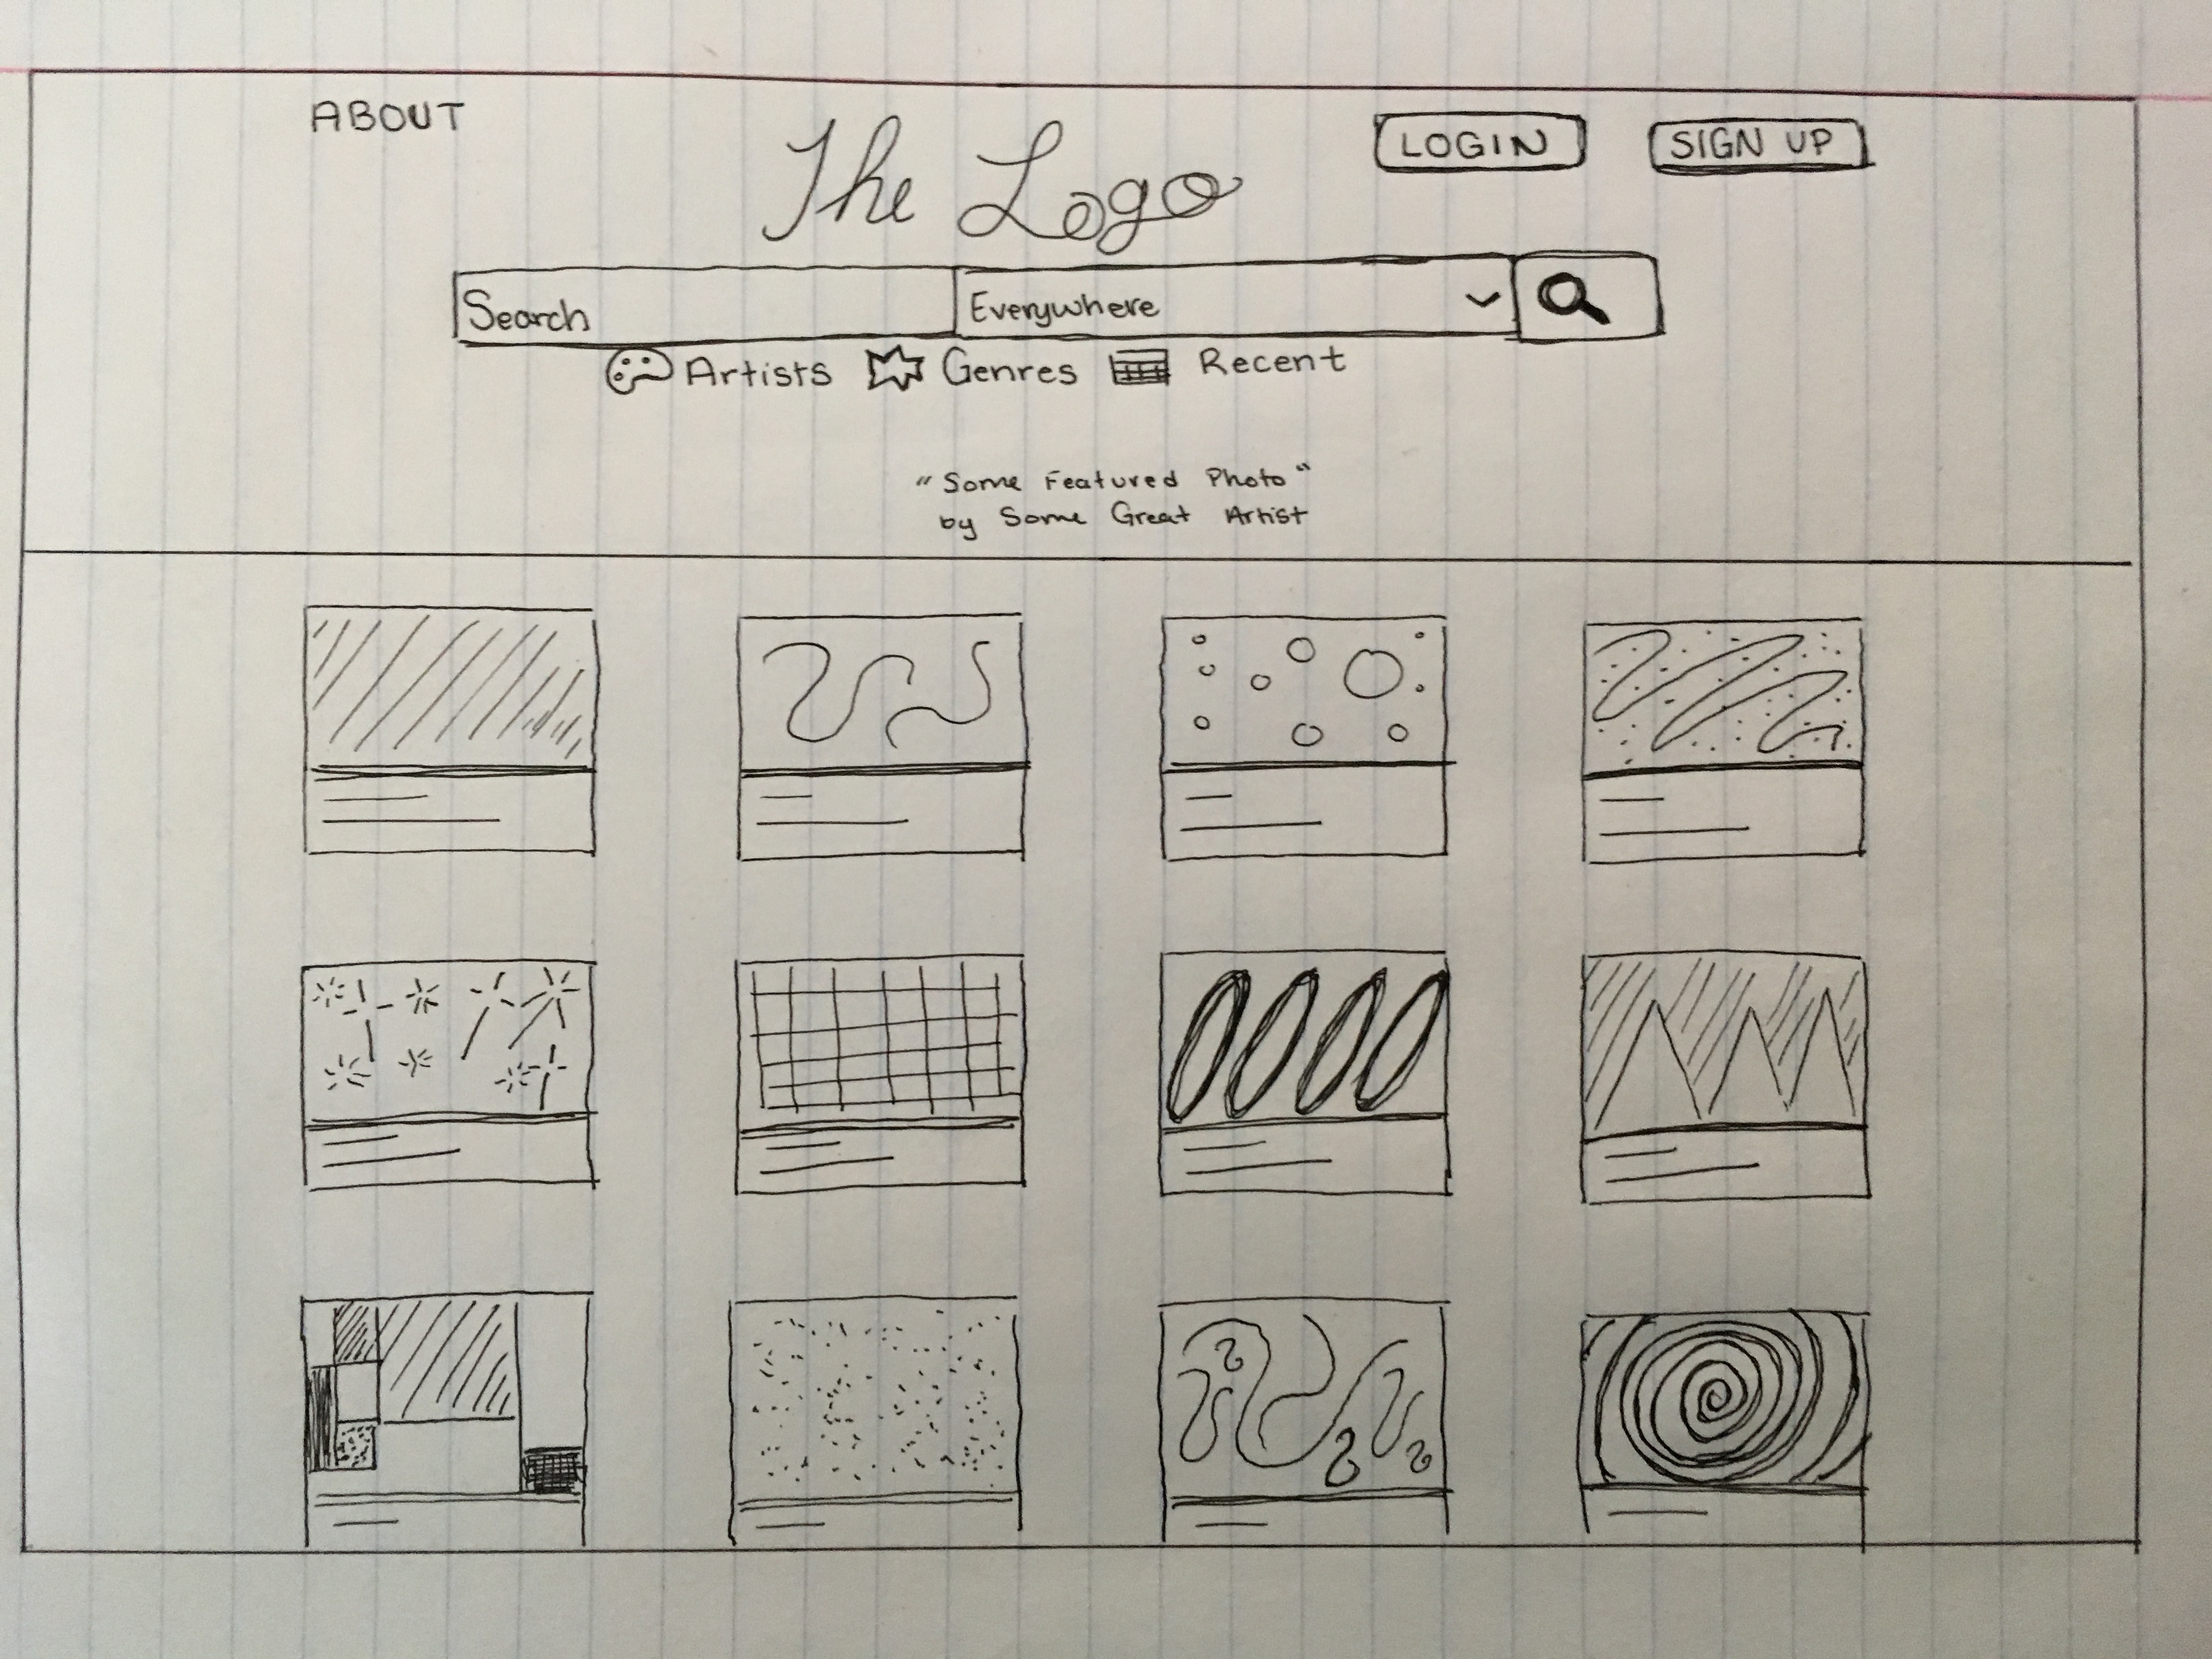 ABOUT
The Logo
LOGIN
SIGN UP
Search
Everywhere
Artists
Genres
Recent
"Some Featured Photo"
by Some Great Artist